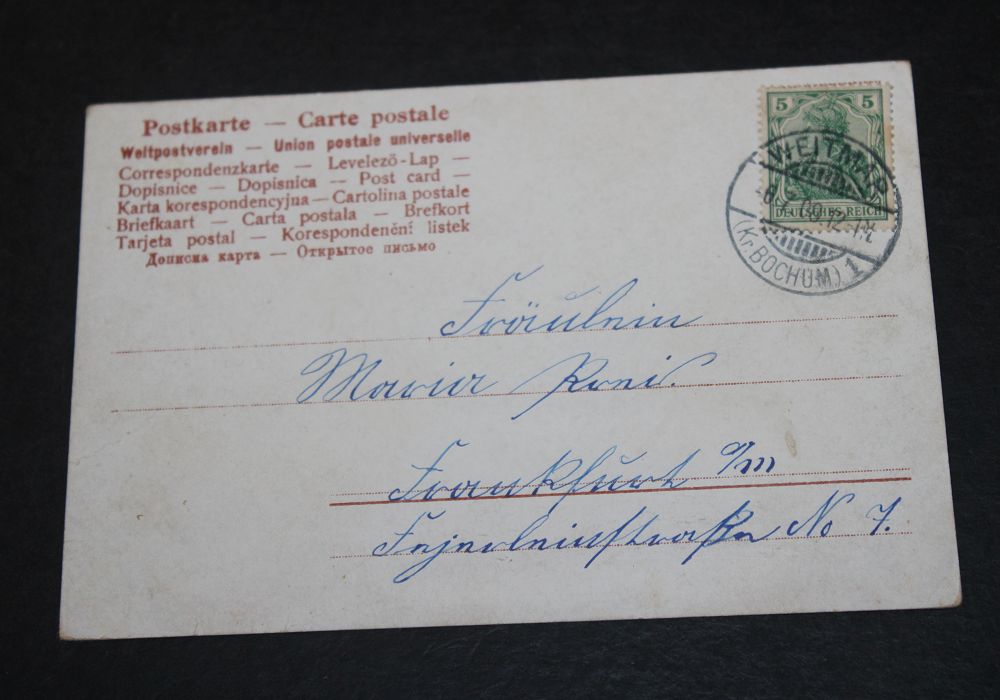 Postkarte — Carte postale
Weltpostverein — Union postale universelle
Correspondenzkarte — Levelező-Lap —
Dopisnice — Dopisnica — Post card —
Karta korespondencyjna — Cartolina postale
Briefkaart — Carta postala — Brefkort
Tarjeta postal — Korespondenční listek
Дописна карта — Открытое письмо
5 5
DEUTSCHES REICH
WEITMAR
(Kr. BOCHUM) 1
Fräulein
Maria
Frankfurt a/m
No 7.